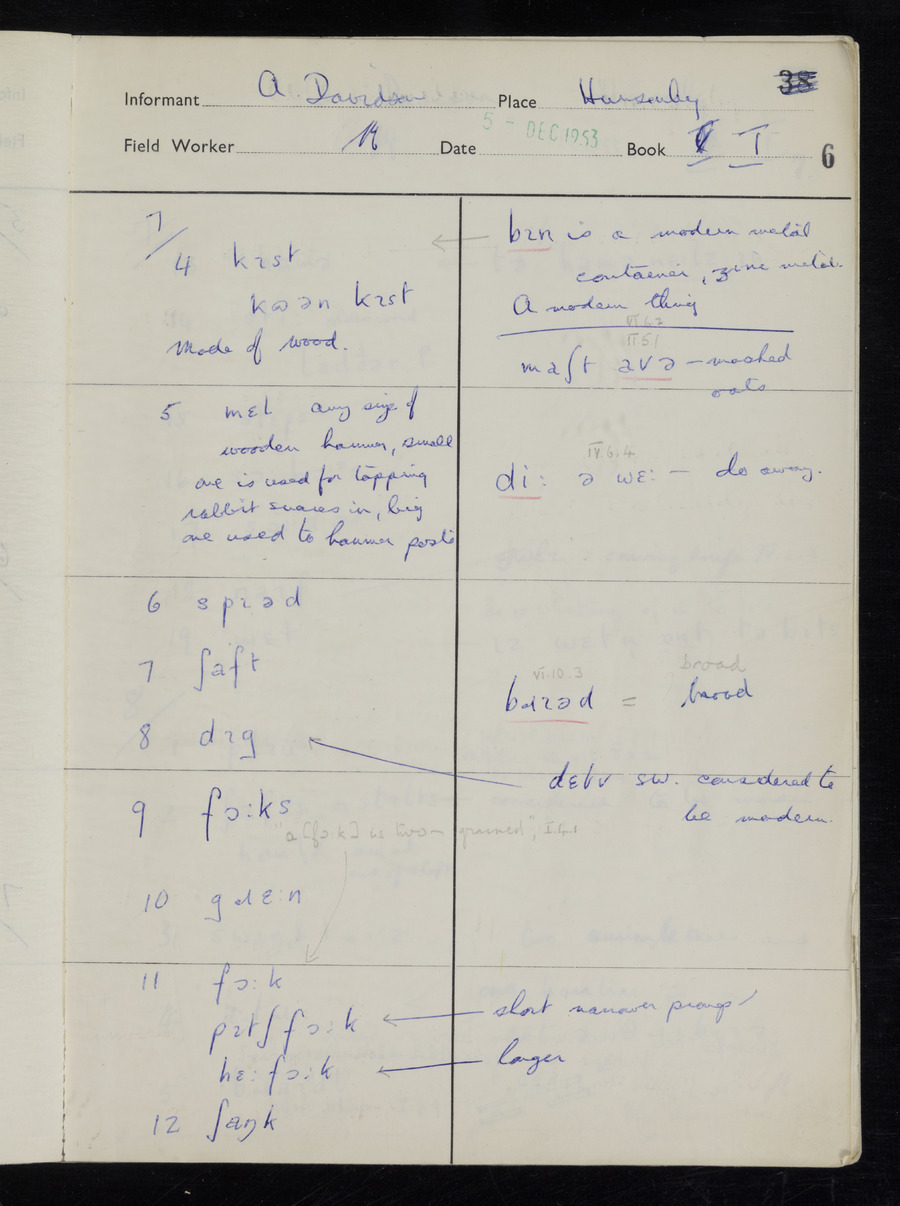 38
Informant A. Davidson Place Hunsonby
Field Worker Date 5 - DEC 1953 Book V I 6
7/
4 kɪst
kɷən kɪst
Made of wood.
bɪn is a modern metal
container, zinc metal.
A modern thing
VI.6.7
II.5.1
maʃt avə – mashed
oats
5 mɛl any size of
wooden hammer, small
one is used for tapping
rabbit snares in, big
one used to hammer posts
IV.6.4
di: ə wɛ: – do away.
6 spɪəd
7 ʃaft
8 dɪg
VI.10.3 broad
bɹɪəd = broad
dɛlv sw. considered to
be modern.
9 fɔ:ks
"a [fɔ:k] is two-grained", I.4.1
10 gɹɛ:n
11 fɔ:k
pɪtʃfɔ:k
short narrower prongs
hɛ:fɔ:k
larger
12 ʃaŋk